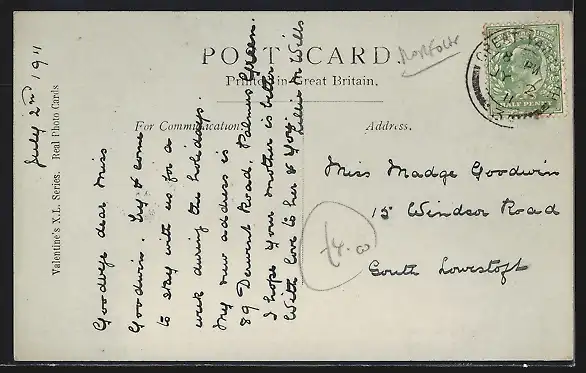 POST CARD.
Printed in Great Britain.
NORFOLK
For Communication.
Address.
Valentine's X.L. Series. Real Photo Cards
July 2nd 1911
Goodbye dear Miss
Goodwin. Try & come
to stay with us for a
week during the holidays.
My new address is
89 Derwent Road. Palmers Green.
I hope your mother is better
With love to her & you.
Lillie M Wills
Miss Madge Goodwin
15 Windsor Road
South Lowestoft
£4.00
GREAT YARMOUTH
PM
HALF PENNY